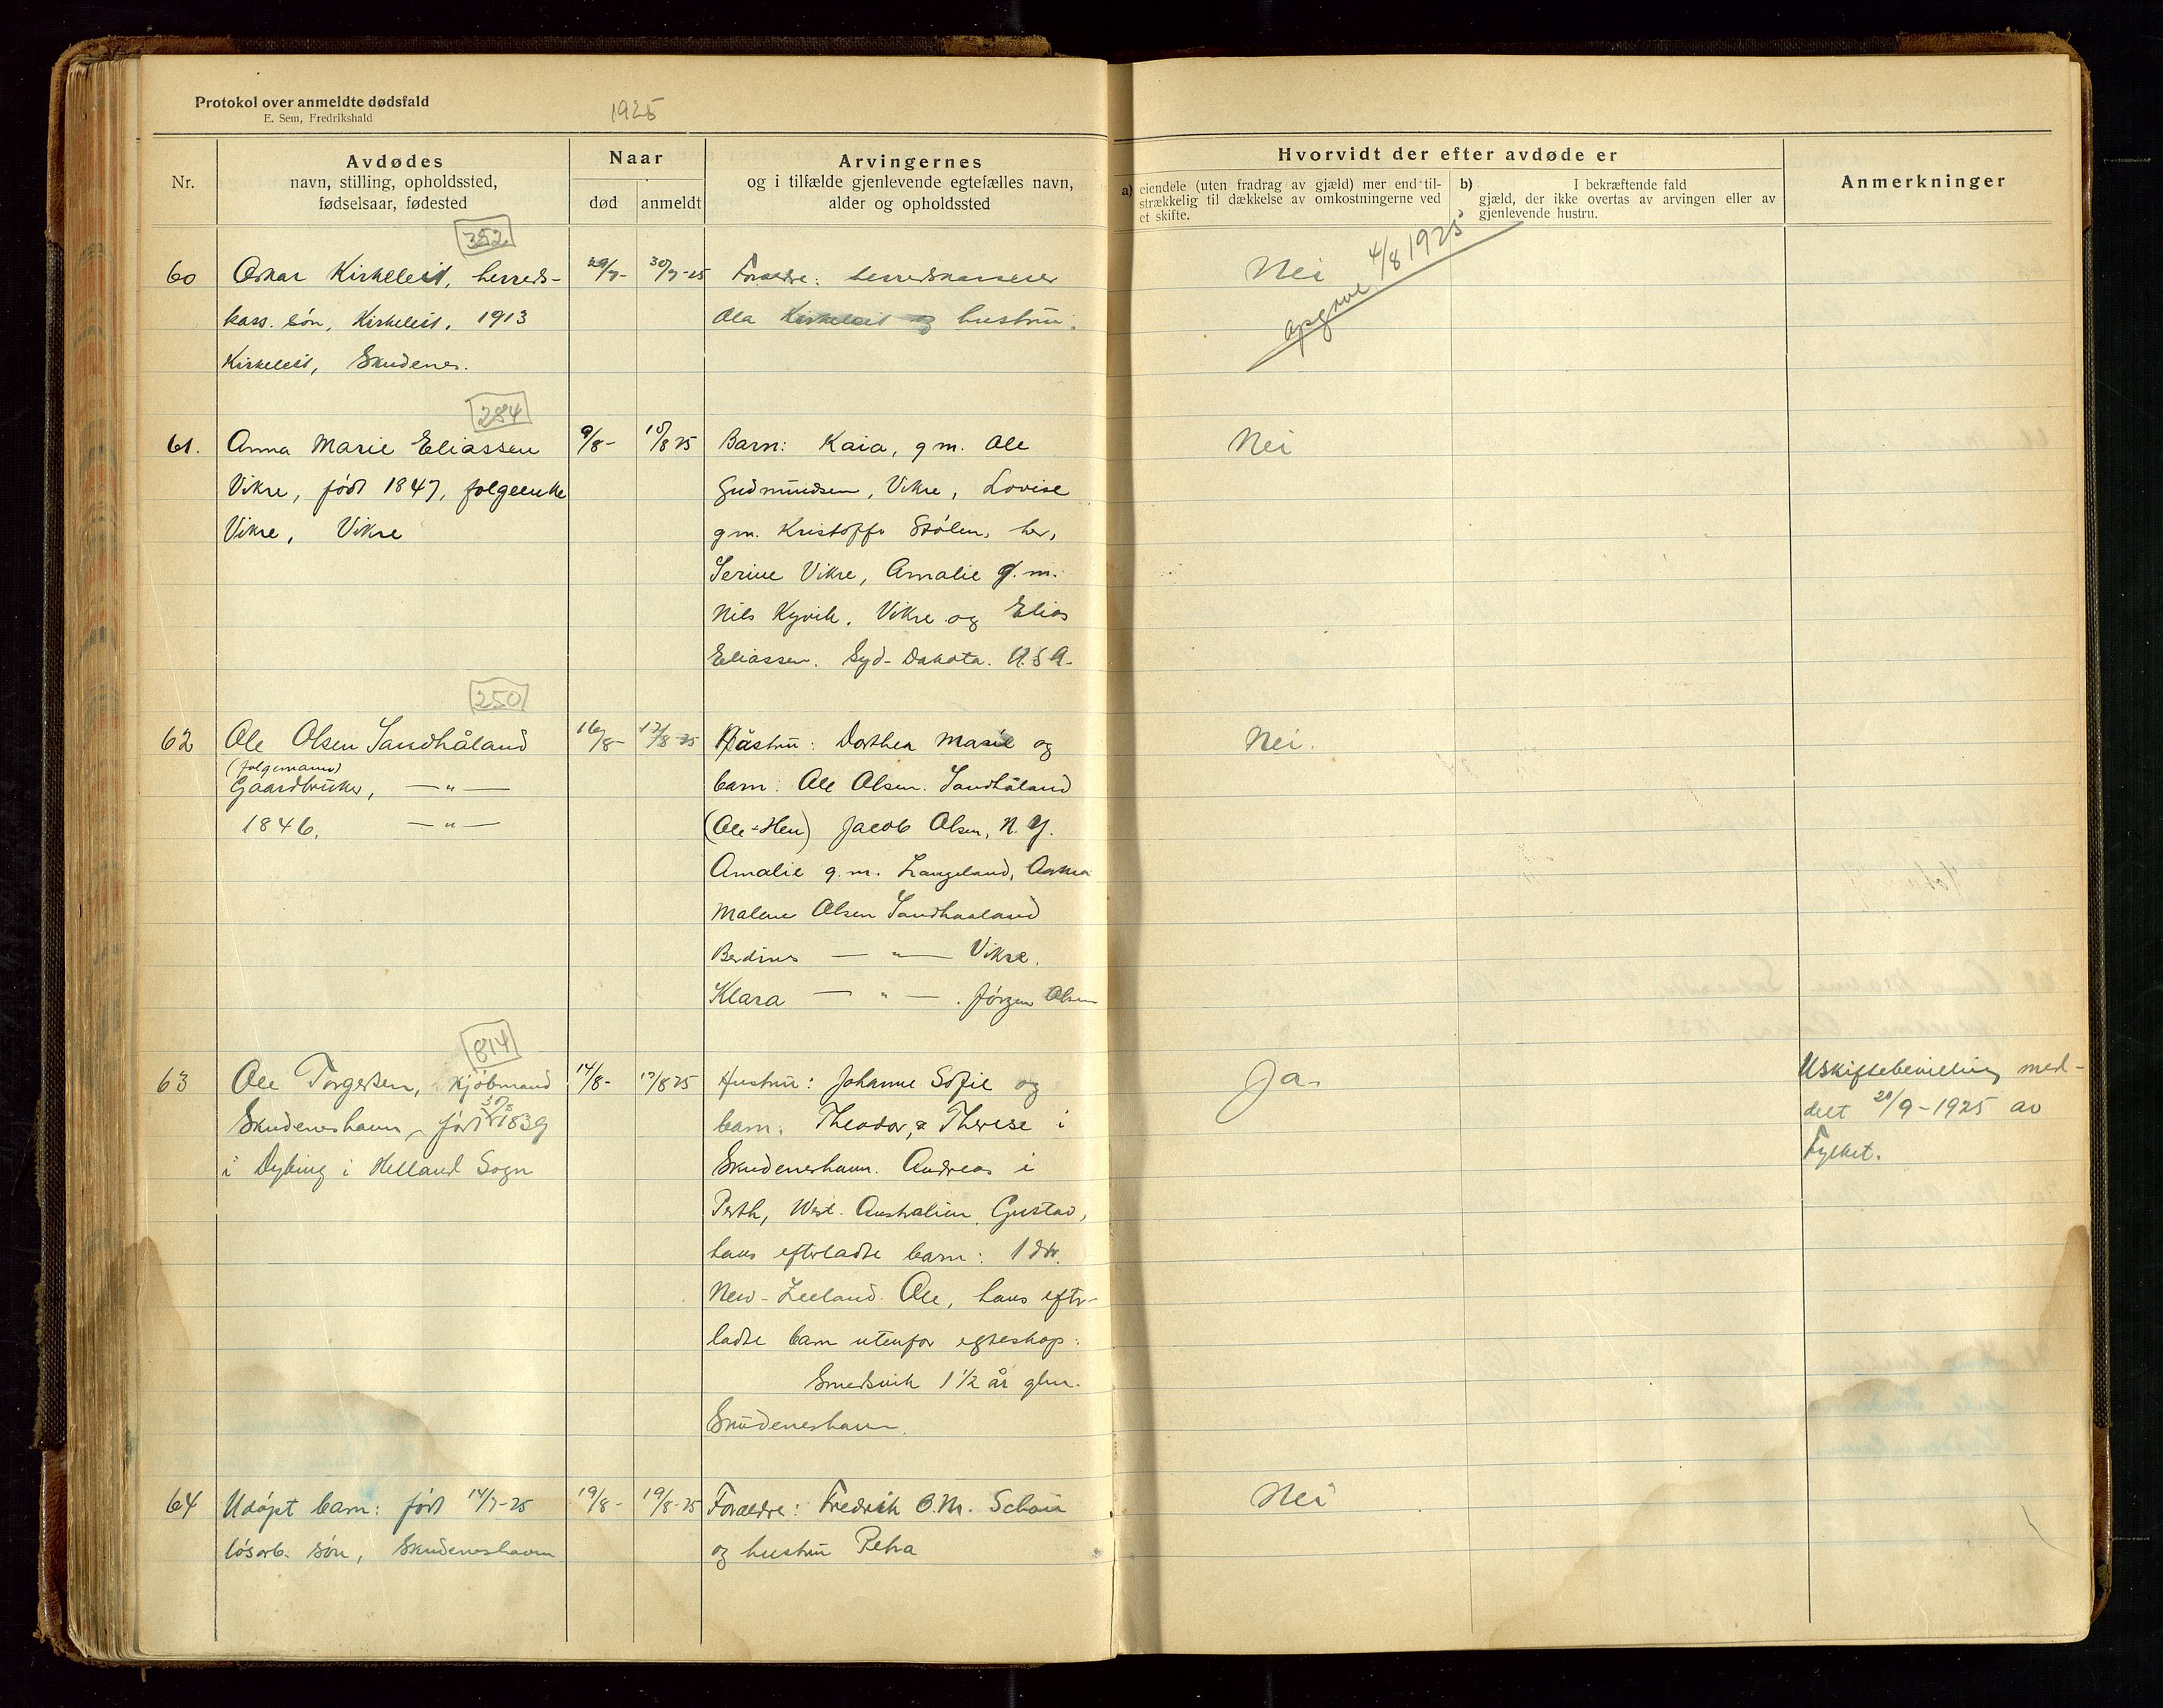 Protokol over anmeldte dødsfald
E. Sem, Fredrikshald
1925
Nr.
Avdødes
navn, stilling, opholdssted,
fødselsaar, fødested
Naar
død
anmeldt
Arvingernes
og i tilfælde gjenlevende egtefælles navn,
alder og opholdssted
Hvorvidt der efter avdøde er
a) eiendele (uten fradrag av gjæld) mer end til-
strækkelig til dækkelse av omkostningerne ved
et skifte.
b) I bekræftende fald
gjæld, der ikke overtas av arvingen eller av
gjenlevende hustru.
Anmerkninger
352
60
Oskar Kirkeleit, herreds-
kass. søn, Kirkeleit, 1913
Kirkeleit, Skudenes.
29/7-
30/7-25
Forældre: herredskasserer
Ola Kirkeleit og hustru.
Nei
opgave 4/8 1925
284
61.
Anna Marie Eliassen
Vikre, født 1847, folgeenke
Vikre, Vikre
9/8-
10/8 25
Barn: Kaia, g m. Ole
Gudmundsen, Vikre, Lovise
g m. Kristoffer Stølen, her,
Serine Vikre, Amalie g. m.
Nils Kyvik, Vikre og Elias
Eliassen. Syd-Dakota. U.S.A.
Nei
250
62
Ole Olsen Sandhåland
(folgemand)
Gaardbruker, — " —
1846. — " —
16/8-
17/8-25
Hustru: Dorthea Marie og
barn: Ole Olsen. Sandhåland
Jacob Olsen, N. Y.
Amalie g. m. Langeland,
Malene Olsen Sandhaaland
Berdines — " — Vikre.
Klara — " — . Jørgen Olsen
Nei.
814
63
Ole Torgersen, Kjøbmand
Skudeneshavn, født 1839
i Dybing i Helland Sogn
14/8-
17/8 25
Hustru: Johanne Sofie og
barn: Theodor, & Therese i
Skudeneshavn. Andreas i
Perth, West. Australien, Gustav,
hans efterladte barn: 1 dtr.
New-Zeeland. Ole, hans efter-
ladte barn utenfor egteskap:
Smedsvik 1 1/2 år glm.
Skudeneshavn.
Ja.
Uskiftebevilling med-
delt 21/9-1925 av
Fylket.
64
Udøpt barn: født 14/7-25
løsarb. søn, Skudeneshavn
19/8-
19/8-25
Forældre: Fredrik O.M.
og hustru Petra
Nei